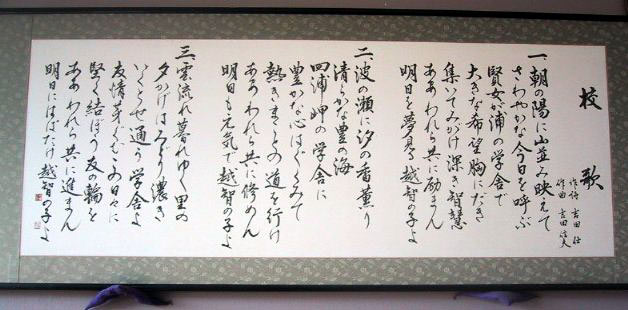 校歌
作詞 吉田
作曲 吉田
一、朝の陽に山並み映えて
さわやかな今日を呼ぶ
賢女が浦の学舎で
大きな希望胸にだき
集いてみがけ深き智慧
ああわれら共に励まん
明日を夢見る越智の子よ
二、波の瀬に汐の香薫り
清らかな豊の海
四浦岬の学舎に
豊かな心はぐくみて
熱きまことの道を行け
ああわれら共に修めん
明日も元気で越智の子よ
三、雲流れ暮れゆく里の
夕かげはみどり濃き
いくとせ通う学舎よ
友情芽ぐむこの日々に
堅く結ぼう友の輪を
ああわれら共に進まん
明日にはばたけ越智の子よ